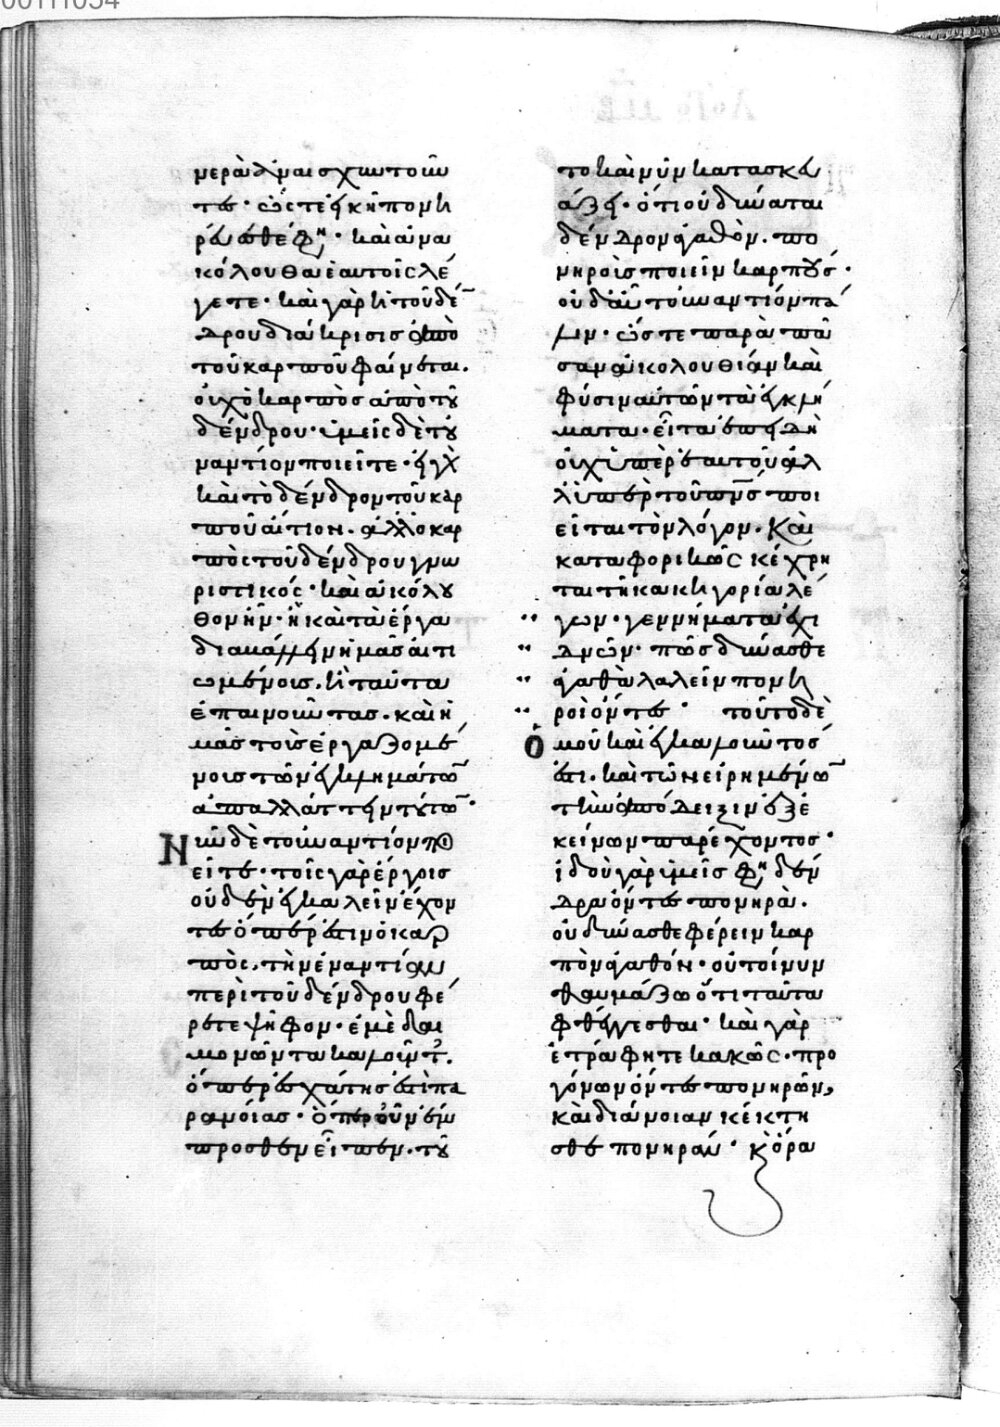 μερὰ καὶ ἀναισχυντοῦν
τες· ὥστε ἐκεῖ πονη
ρεύεσθέ φη· καὶ ἀνα
κόλουθα ἑαυτοῖς λέ
γετε· καὶ γὰρ ἡ τοῦ δέν
δρου διάκρισις ἀπὸ
τοῦ καρποῦ φαίνεται.
οὐχ ὁ καρπὸς ἀπὸ τοῦ
δένδρου· ὑμεῖς δὲ τοὐ
ναντίον ποιεῖτε· εἰ γὰρ
καὶ τὸ δένδρον τοῦ καρ
ποῦ αἴτιον. ἀλλ' ὁ καρ
πὸς τοῦ δένδρου γνω
ριστικός· καὶ ἀκόλου
θον ἦν· ἢ καὶ τὰ ἔργα
διαβάλλειν ἡμᾶς αἰτι
ωμένοις. ἢ ταῦτα
ἐπαινοῦντας. καὶ ἡ
μᾶς τοὺς ἐργαζομέ
νους τῶν ἐγκλημάτων
ἀπαλλάττειν τούτων·
Νῦν δὲ τοὐναντίον ποι
εῖτε· τοῖς γὰρ ἔργοις
οὐδὲν ἐγκαλεῖν ἔχον
τες ὅπερ ἐστὶν ὁ καρ
πὸς, τὴν ἐναντίαν
περὶ τοῦ δένδρου φέ
ρετε ψῆφον· ἐμὲ δαι
μονῶντα καλοῦντες.
ὅπερ ἐσχάτης ἐστὶ πα
ρανοίας· Ὅπερ οὖν ἔμ
προσθεν εἶπεν· τοῦ
το καὶ νῦν κατασκευ
άζει· ὅτι οὐ δύναται
δένδρον ἀγαθὸν. πο
νηροὺς ποιεῖν καρπούς·
οὐδ' αὖ τοὐναντίον πά
λιν· ὥστε παρὰ πᾶ
σαν ἀκολουθίαν καὶ
φύσιν αὐτῶν τὰ ἐγκλή
ματα· εἶτα ἐπειδὴ
οὐχ ὑπὲρ ἑαυτοῦ ἀλ
λ' ὑπὲρ τοῦ πνς ποι
εῖται τὸν λόγον. Καὶ
καταφορικῶς κέχρη
ται τῇ κατηγορία λέ
γων· γεννήματα ἐχι
δνῶν· πῶς δύνασθε
ἀγαθὰ λαλεῖν πονη
ροὶ ὄντες· τοῦτο δὲ
Ὁμοῦ καὶ ἐγκαλοῦντός
ἐστι. καὶ τῶν εἰρημένων
τὴν ἀπόδειξιν ἐξ ἐ
κείνων παρέχοντος·
ἰδοὺ γὰρ ὑμεῖς φη δέν
δρα ὄντες πονηρὰ.
οὐ δύνασθε φέρειν καρ
πὸν ἀγαθόν· οὐ τοίνυν
θαυμάζω ὅτι ταῦτα
φθέγγεσθαι· καὶ γὰρ
ἐτράφητε κακῶς· προ
γόνων ὄντες πονηρῶν,
καὶ διάνοιαν κέκτη
σθε πονηράν· κ ὅρα